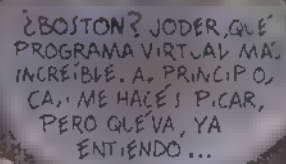 ¿BOSTON? JODER, QUÉ
PROGRAMA VIRTUAL MÁ.
INCREÍBLE. A, PRINCIP O,
CA,I ME HACÉ S PICAR,
PERO QUÉ VA, YA
ENTIENDO...